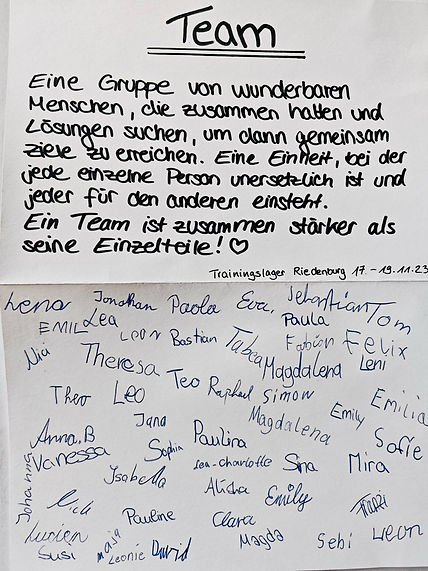 Team
Eine Gruppe von wunderbaren
Menschen, die zusammen halten und
Lösungen suchen, um dann gemeinsam
Ziele zu erreichen. Eine Einheit, bei der
jede einzelne Person unersetzlich ist und
jeder für den anderen einsteht.
Ein Team ist zusammen stärker als
seine Einzelteile! ♡
Trainingslager Riedenburg 17. - 19.11.23
Lena Jonathan Paola Eva Sebastian Tom
EMIL Lea Leon Bastian Tabea Paula Fabian Felix
Nia Theresa Magdalena Leni
Theo Leo Teo Raphael Simon Emilia
Jana Magdalena Emily
Anna.B Sophia Paulina Sofie
Vanessa Lea-Charlotte Sina Mira
Johanna Isabella Alisha Emily
Pauline Clara
Lucien Magda Sebi Leon
Susi Maja Leonie David